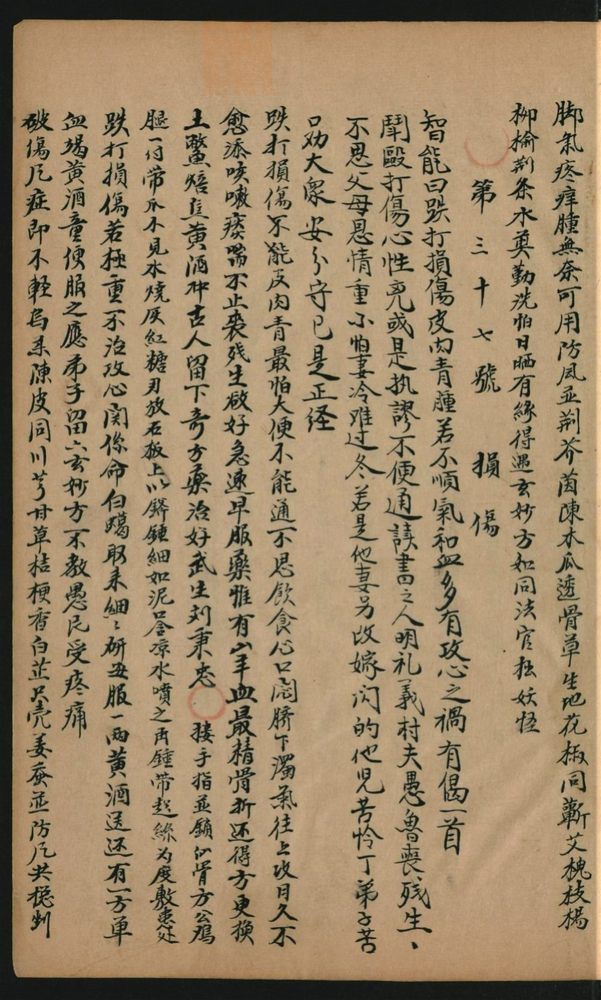 脚氣疼痒腫無奈可用防風並荆芥茵陳木瓜透骨草生地花椒同蘄艾槐枝楊
柳榆荆条水煎勤洗怕日晒有緣得遇玄妙方如同法官捉妖怪
第三十七號 損傷
智能曰跌打損傷皮肉青腫若不順氣和血多有攻心之禍有偈一首
鬪毆打傷心性亮或是执謬不便通讀書之人明礼義村夫愚魯喪残生
不思父母恩情重不怕妻冷难过冬若是他妻另改嫁闪的他兒苦怜丁弟子苦
口劝大衆安分守已是正经
跌打損傷不能皮肉青最怕大便不能通不思飲食心口闷臍下濁氣往上攻日久不
愈添咳嗽痰喘不止喪残生欲好急速早服藥惟有山羊血最精骨折还得方更换
土鱉焙焦黄酒冲古人留下奇方藥治好武生刘秉忠 接手指並鎖仙骨方公鸡
腿一付带爪不見水燒灰紅糖刃放石板上以鎊錘細如泥口含凉水噴之再錘带起絲为度敷患处
跌打損傷若極重不治攻心関係命白蠟取来細々研丑服一两黄酒送还有一方单
血竭黄酒童便服之應弟子留六玄妙方不教愚民受疼痛
破傷凡症即不軽烏系陳皮同川芎甘草桔梗香白芷只壳姜蚕並防凡共穩剉